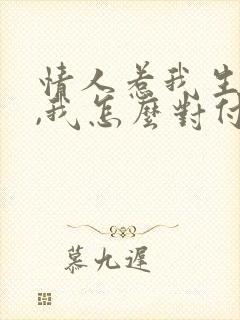 情人惹我生
,我怎麼對付
慕九遲